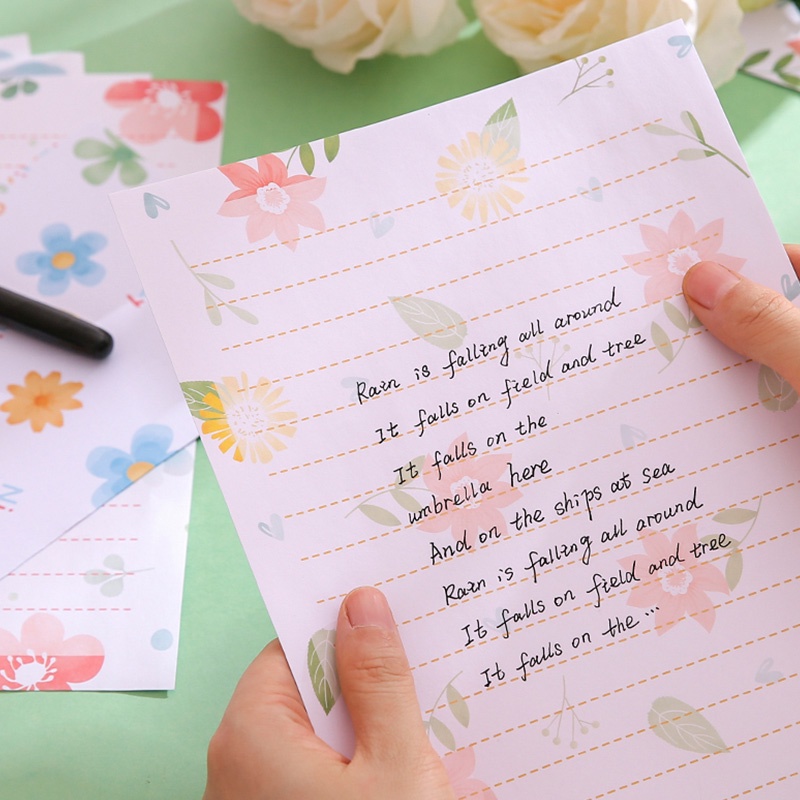 Rain is falling all around
It falls on field and tree
It falls on the
umbrella here
And on the ships at sea
Rain is falling all around
It falls on field and tree
It falls on the...